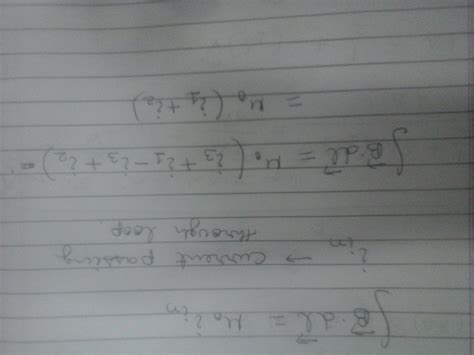 ∫B⃗·dl⃗ = μ₀ i in
i in → current passing
through loop
∫B⃗·dl⃗ = μ₀ (i₃ + i₁ − i₃ + i₂)
= μ₀ (i₁ + i₂)